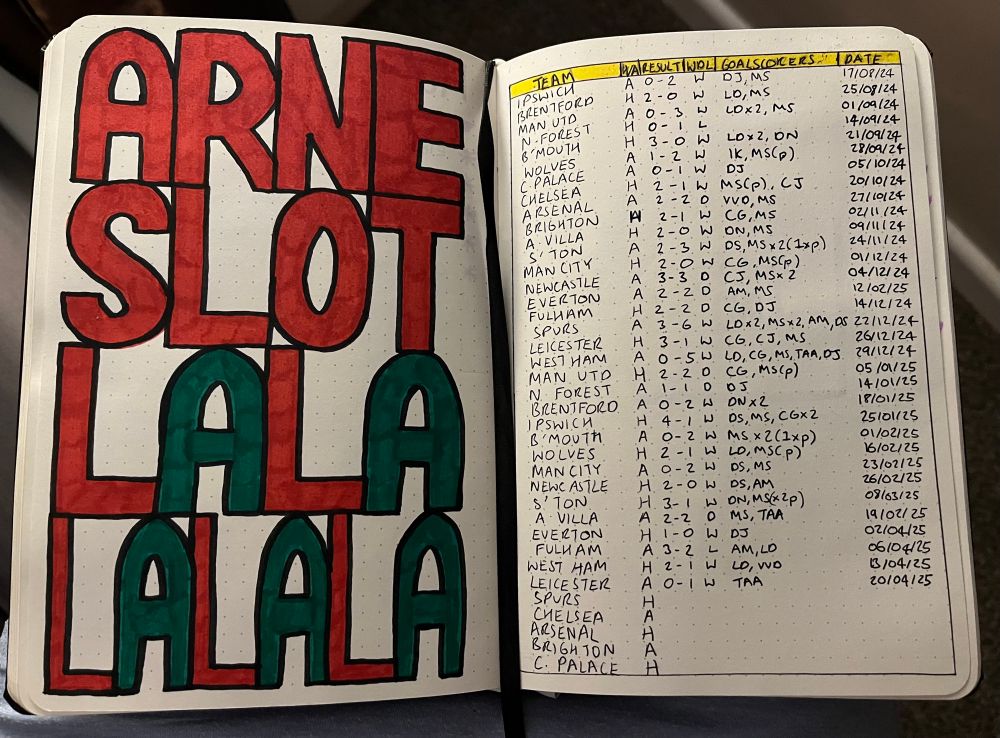 ARNE
SLOT
LALA
LALALA
TEAM H/A RESULT WDL GOALSCORERS DATE
IPSWICH A 0-2 W DJ, MS 17/08/24
BRENTFORD H 2-0 W LD, MS 25/08/24
MAN UTD A 0-3 W LDx2, MS 01/09/24
N.FOREST H 0-1 L 14/09/24
B'MOUTH H 3-0 W LDx2, DN 21/09/24
WOLVES A 1-2 W IK, MS(p) 28/09/24
C.PALACE A 0-1 W DJ 05/10/24
CHELSEA H 2-1 W MS(p), CJ 20/10/24
ARSENAL A 2-2 D VVD, MS 27/10/24
BRIGHTON H 2-1 W CG, MS 02/11/24
A.VILLA H 2-0 W DN, MS 09/11/24
S'TON A 2-3 W DS, MSx2(1xp) 24/11/24
MAN CITY H 2-0 W CG, MS(p) 01/12/24
NEWCASTLE A 3-3 D CJ, MSx2 04/12/24
EVERTON A 2-2 D AM, MS 12/02/25
FULHAM H 2-2 D CG, DJ 14/12/24
SPURS A 3-6 W LDx2, MSx2, AM, DS 22/12/24
LEICESTER H 3-1 W CG, CJ, MS 26/12/24
WEST HAM A 0-5 W LD, CG, MS, TAA, DJ 29/12/24
MAN UTD H 2-2 D CG, MS(p) 05/01/25
N.FOREST A 1-1 D DJ 14/01/25
BRENTFORD A 0-2 W DNx2 18/01/25
IPSWICH H 4-1 W DS, MS, CGx2 25/01/25
B'MOUTH A 0-2 W MSx2(1xp) 01/02/25
WOLVES H 2-1 W LD, MS(p) 16/02/25
MAN CITY A 0-2 W DS, MS 23/02/25
NEWCASTLE H 2-0 W DS, AM 26/02/25
S'TON H 3-1 W DN, MS(x2p) 08/03/25
A.VILLA A 2-2 D MS, TAA 19/02/25
EVERTON H 1-0 W DJ 02/04/25
FULHAM A 3-2 L AM, LD 06/04/25
WEST HAM H 2-1 W LD, VVD 13/04/25
LEICESTER A 0-1 W TAA 20/04/25
SPURS H
CHELSEA A
ARSENAL H
BRIGHTON A
C.PALACE H